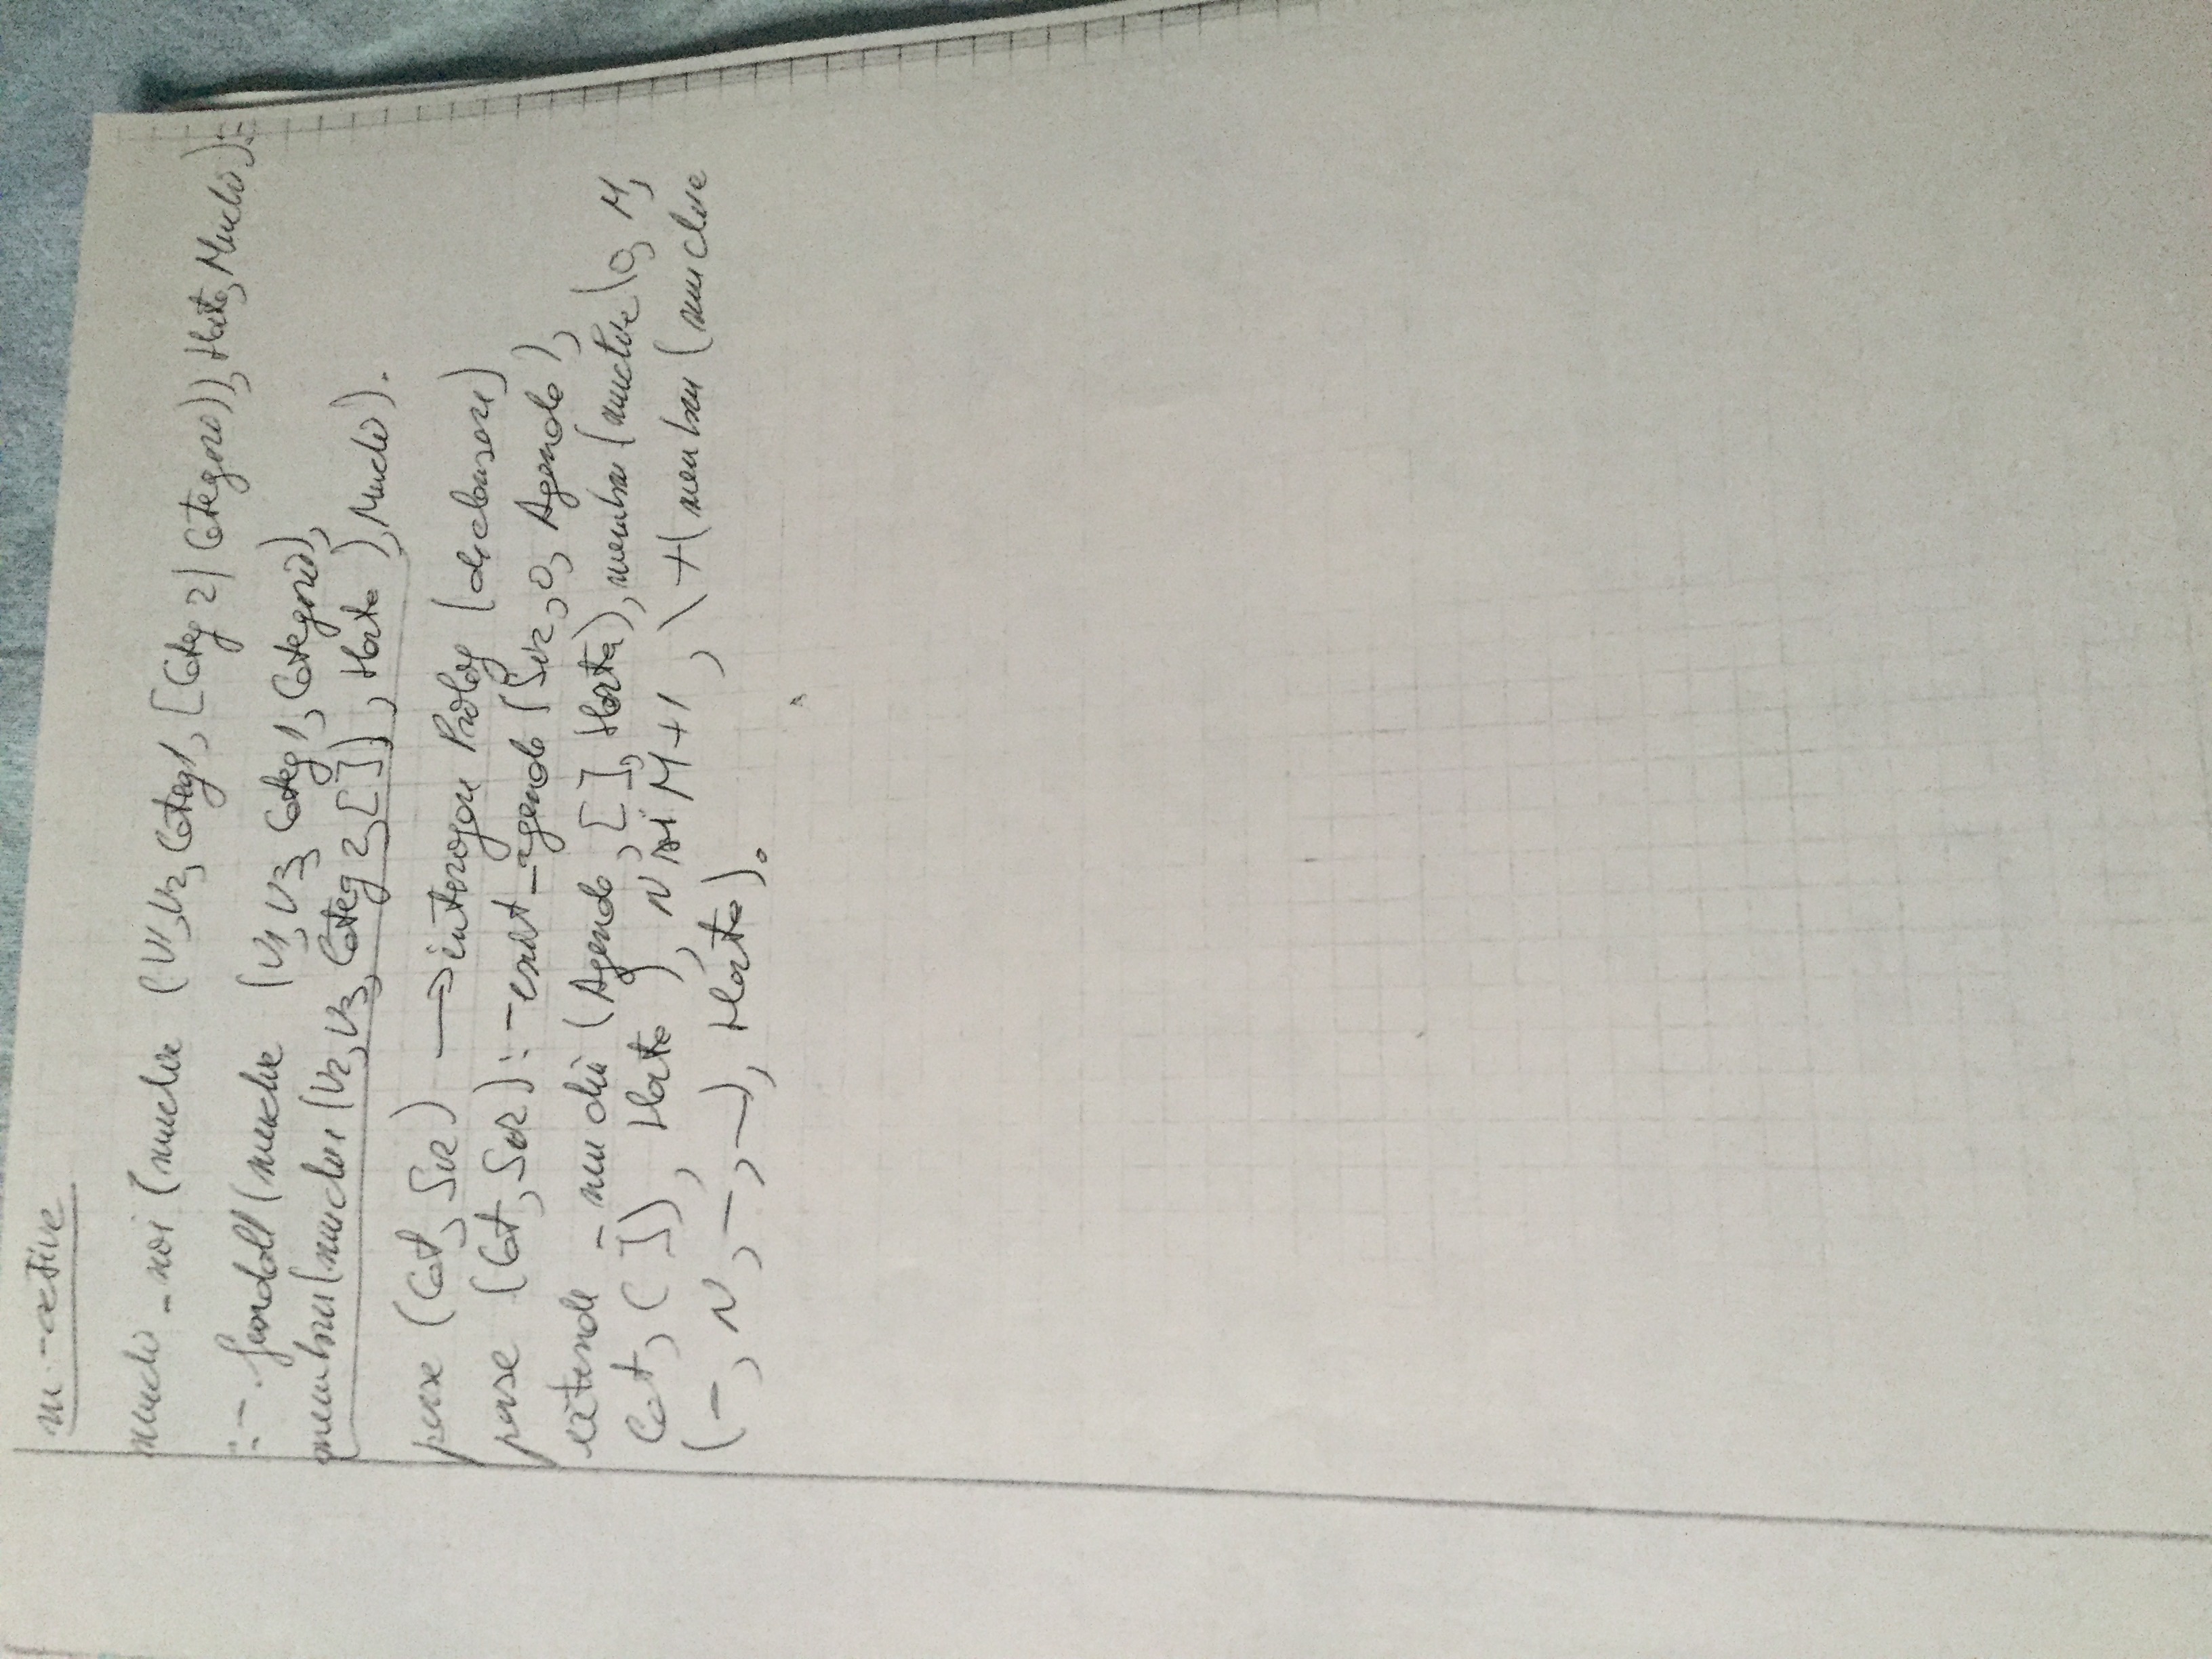 m. -active
muchii_noi (muchie (V1, V2, Categ1, [Categ2 | Categorii)), Harta, Muchii) :-
:- findall (muchie (V1, V3, Categ1, Categorii),
membru (muchie (V2, V3, Categ2, []), Harta), Muchii).
parse (Cat, Sir) → interogare Prolog (declansare)
parse (Cat, Sir) :- _agenda (Sir, 0, Agenda),
extinde _muchii (Agenda, [], Harta), membru (muchie (0, M,
Cat, (]), Harta), N M+1, \+( membru (muchie
(-, N, -, _), Harta).